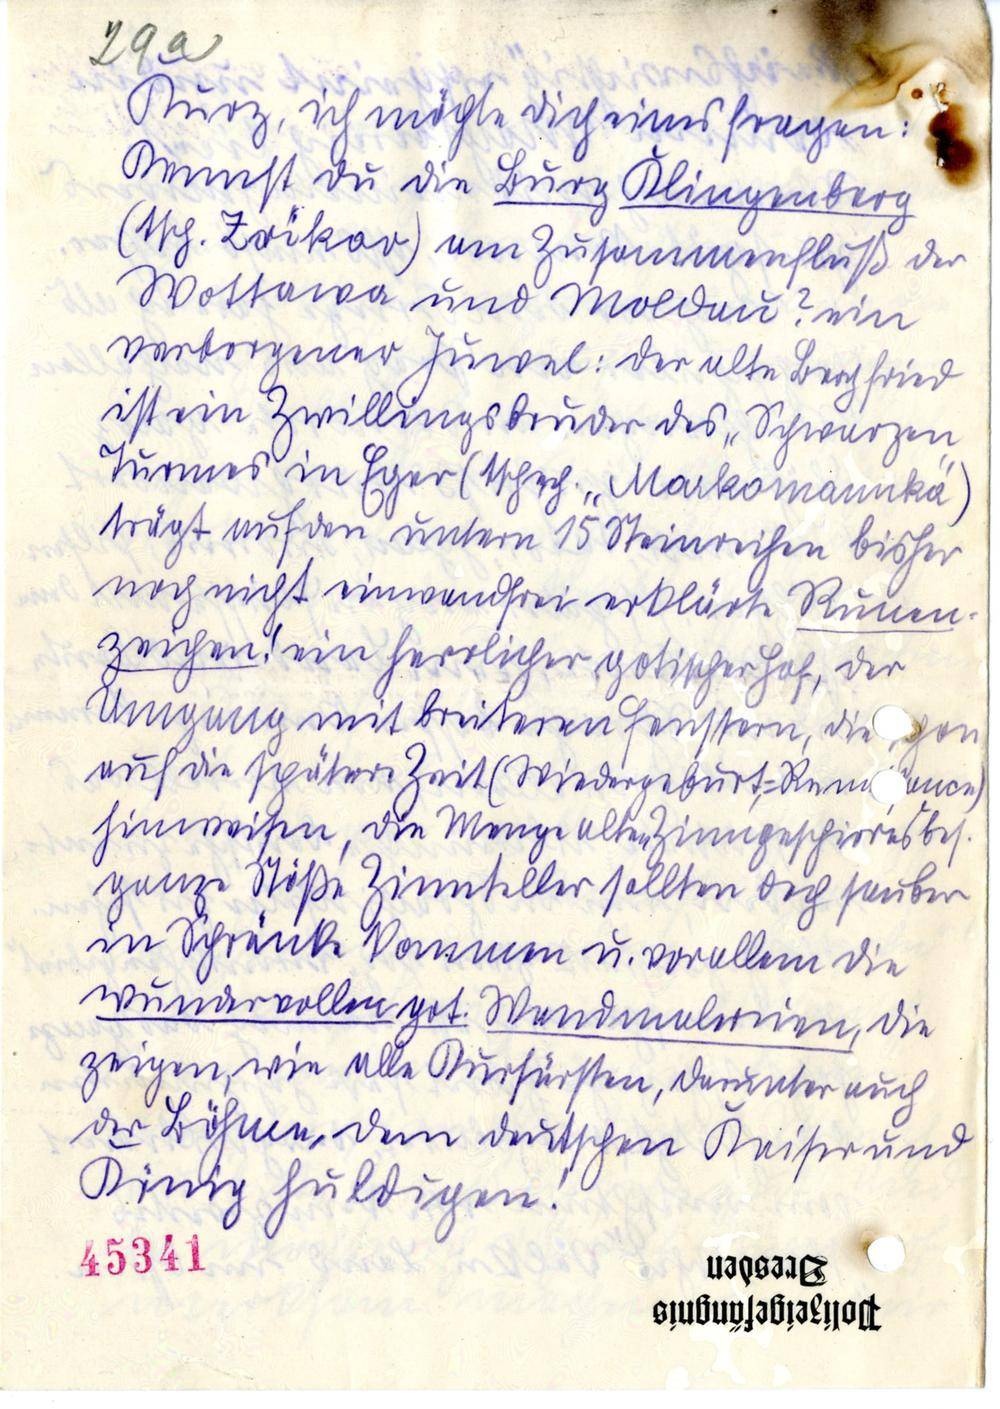 29a
Kurz, ich möchte dich eines fragen:
Kennst du die Burg Klingenberg
(tsch. Zvikov) am Zusammenfluß der
Wottawa und Moldau? ein
verborgener Juwel: der alte Bergfried
ist ein Zwillingsbruder des „Schwarzen„
Turmes in Eger (tschech. „Markomannka)
trägt auf den untern 15 Steinreihen bisher
noch nicht einwandfrei erklärte Runen-
zeichen! ein herrlicher gotischer Hof, der
Umgang mit breiteren Fenstern, die schon
auf die spätere Zeit (Wiedergeburt=Renaissance)
hinweisen, die Menge alten Zinngeschirres bes.
ganze Stöße Zinnteller sollten doch sauber
in Schränke kommen u. vor allem die
wundervollen got. Wandmalereien, die
zeigen, wie alle Kurfürsten, darunter auch
der Böhme, dem deutschen Kaiser und
König huldigen!
45341
Polizeigefängnis
Dresden